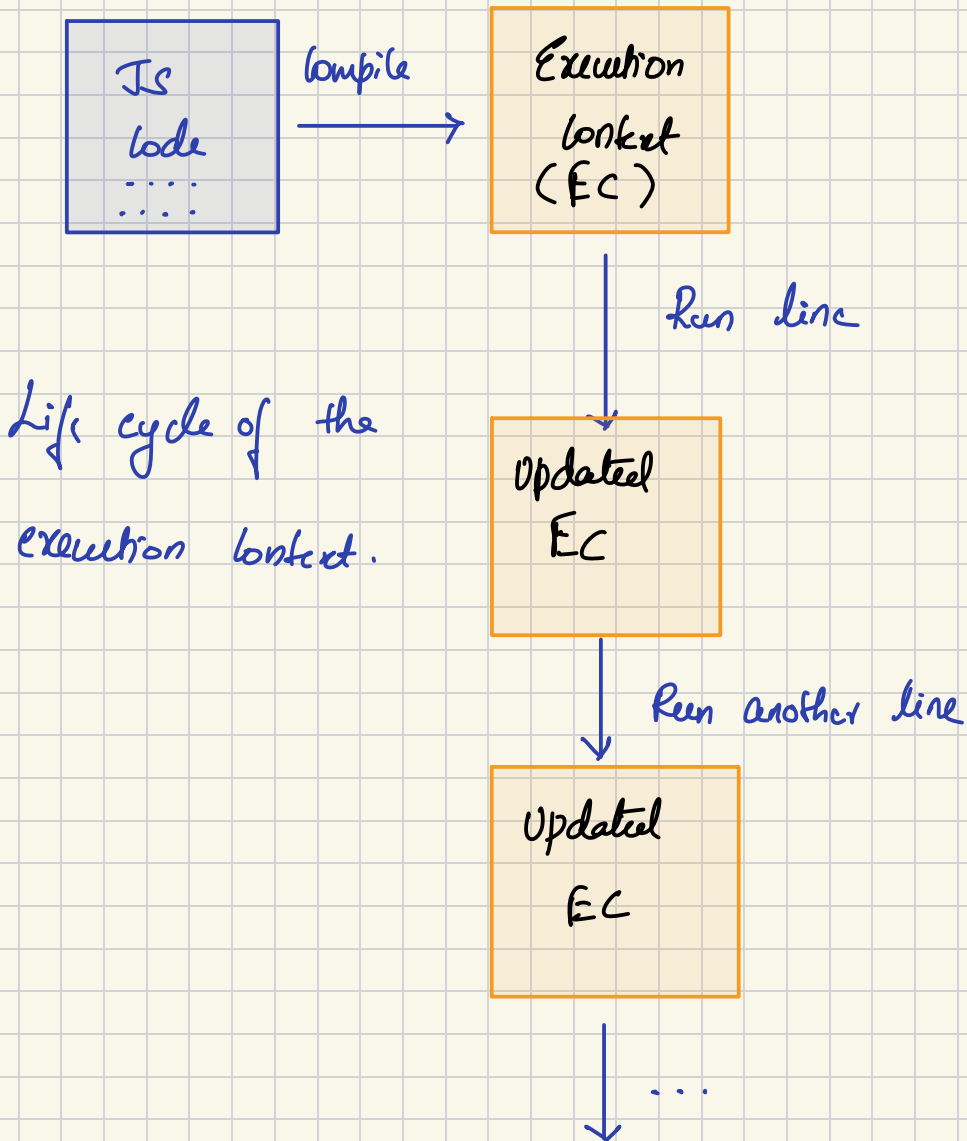 JS
Code
....
....
Compile
Execution
Context
(EC)
Run line
Life cycle of the
execution context.
Updated
EC
Run another line
Updated
EC
...